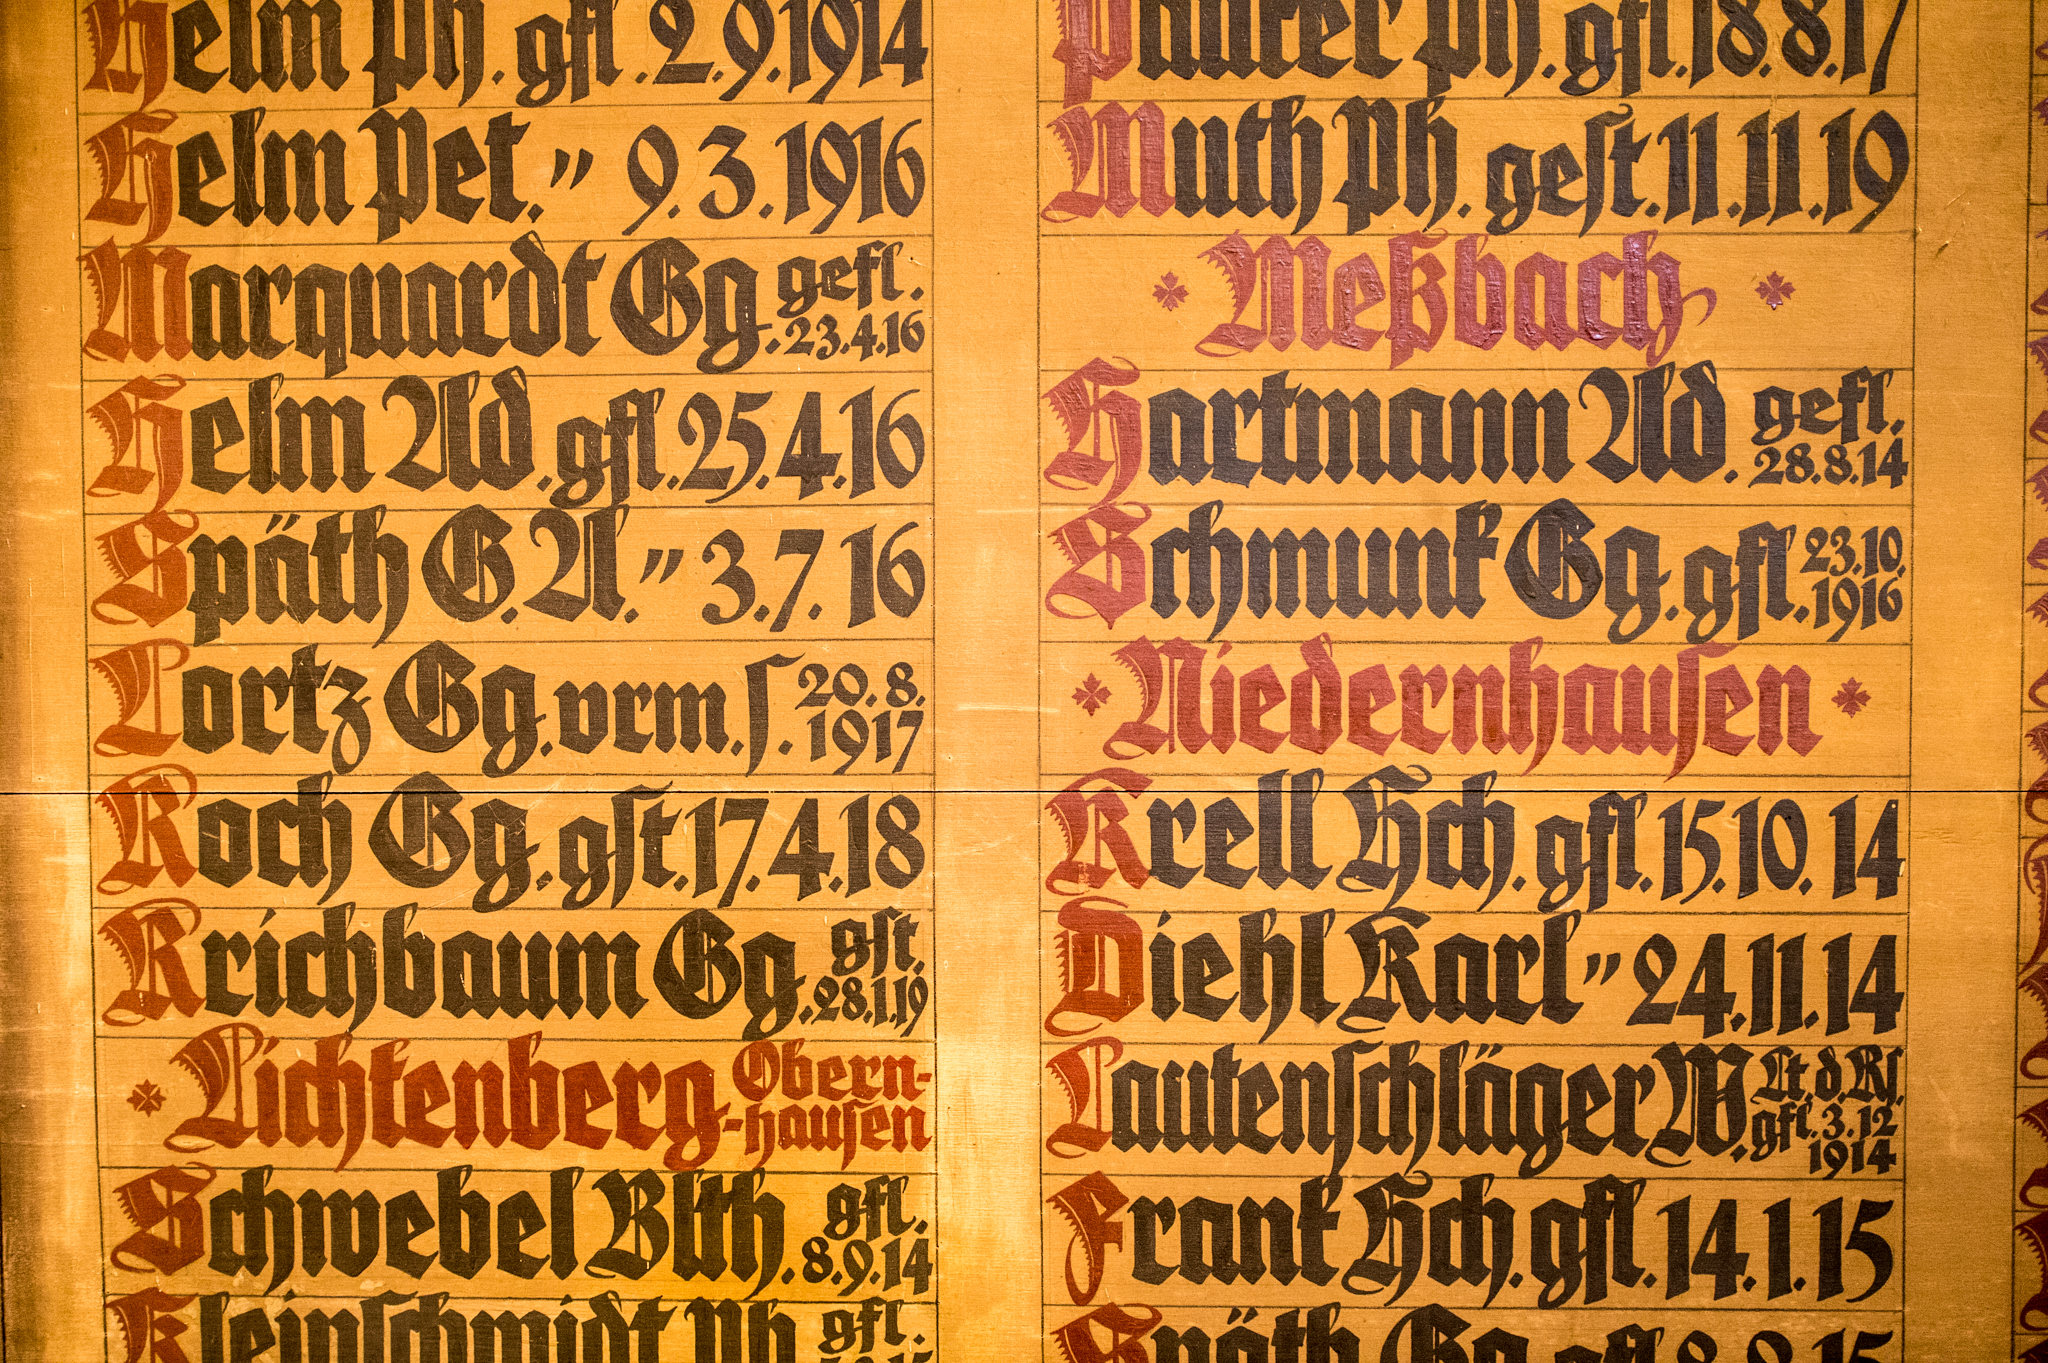 Helm Ph. gfl. 2.9.1914
Helm Pet. " 9.3.1916
Marquardt Gg. gefl. 23.4.16
Helm Ad. gfl. 25.4.16
Späth G. A. " 3.7.16
Lortz Gg. vrm. ſ. 20.8.1917
Koch Gg. gſt. 17.4.18
Krichbaum Gg. gſt. 28.1.19
Lichtenberg-Obern-
-hauſen
Schwebel Blth. gfl. 8.9.14
Kleinſchmidt Ph. gfl.
Ph. gfl. 18.8.17
Muth Ph. geſt. 11.11.19
Meßbach
Hartmann Ad. gefl. 28.8.14
Schmunk Gg. gfl. 23.10.1916
Niedernhauſen
Krell Hch. gfl. 15.10.14
Diehl Karl " 24.11.14
Lautenſchläger W. Lt. d. Rſ. gfl. 3.12 1914
Frank Hch. gfl. 14.1.15
Späth Gg. gfl.